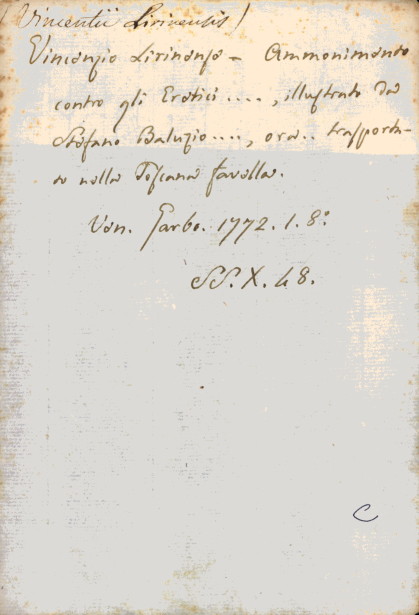 (Vincentii Lirinensis)
Vincenzio Lirinense - Ammonimento
contro gli Eretici ...., illustrato da
Stefano Baluzio...., ora.. trasporta-
to nella Toscana favella.
Ven. Garbo. 1772. 1. 8º
SS. X. 48.
C